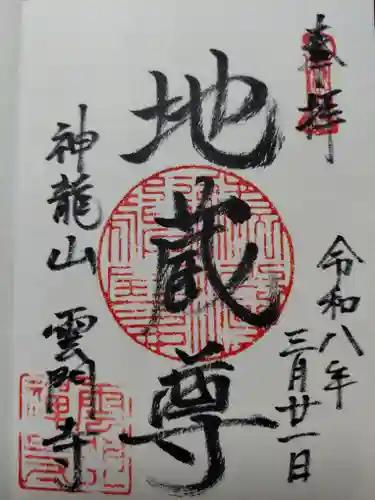 奉拝
令和八年
三月廿一日
地蔵尊
神龍山
雲門寺